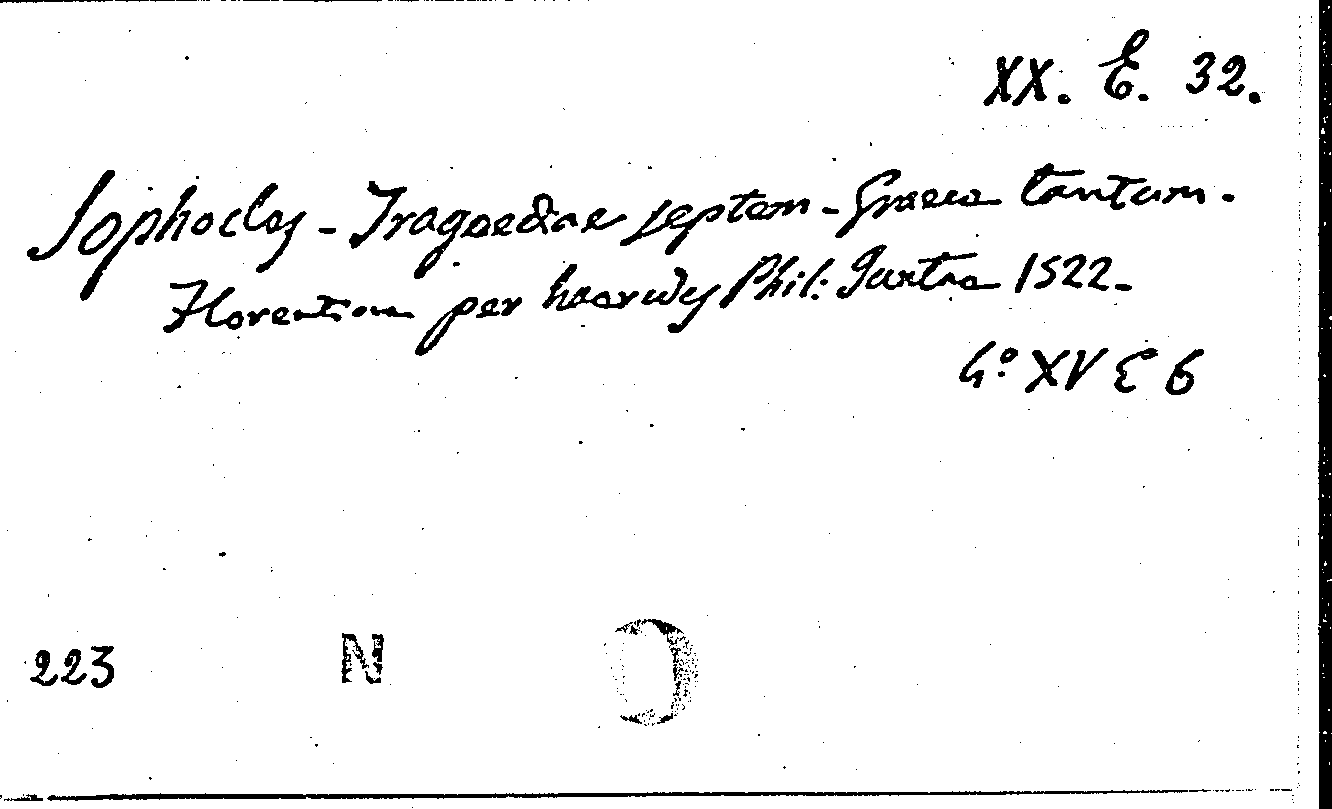 XX. E. 32.
Sophocles - Tragoediae septem - Graece tantum.
Florentiae per haeredes Phil: Juntae 1522.
4º XV E 6
223 N O